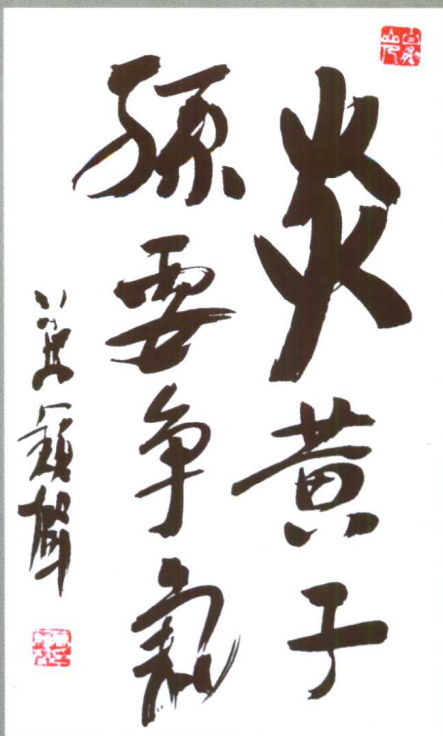 炎黄子
孫要争氣